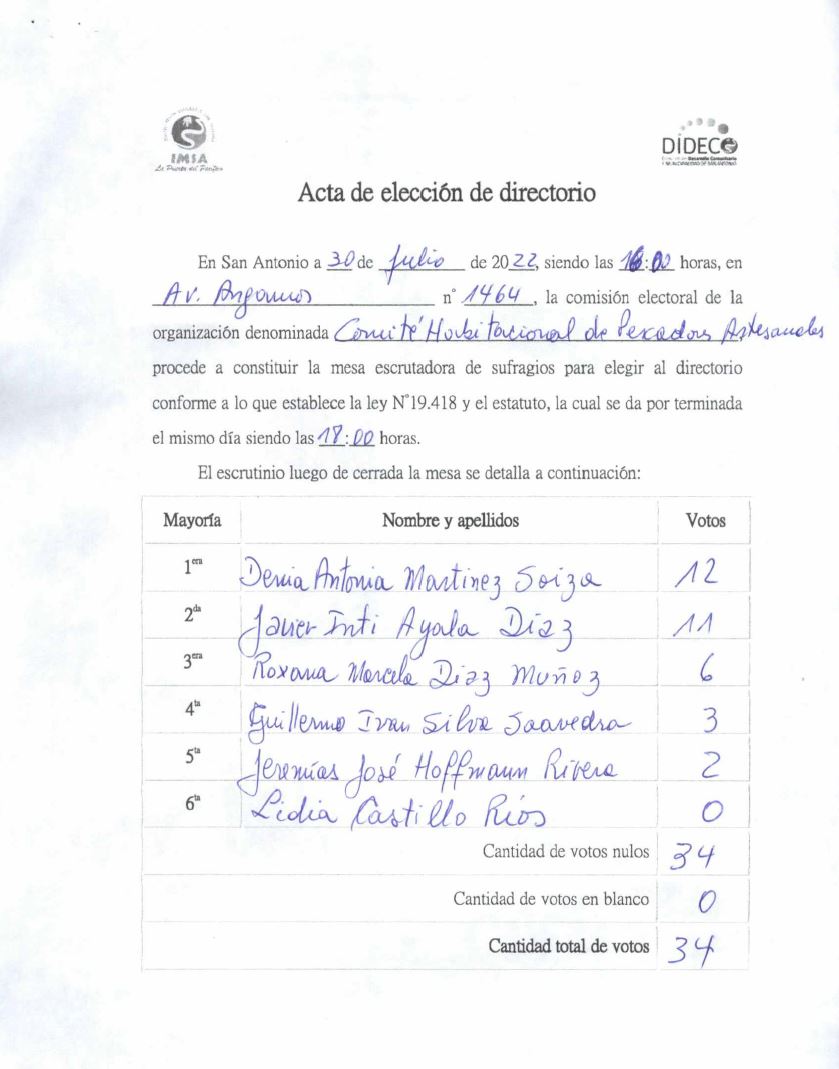 IMSA
La Puerta del Pacífico
DIDECO
Desarrollo Comunitario
I. MUNICIPALIDAD DE SAN ANTONIO
Acta de elección de directorio
En San Antonio a 30 de Julio de 2022, siendo las 16:00 horas, en
Av. Angamos n° 1464, la comisión electoral de la
organización denominada Comité Habitacional de Pescadores Artesanales
procede a constituir la mesa escrutadora de sufragios para elegir al directorio
conforme a lo que establece la ley N°19.418 y el estatuto, la cual se da por terminada
el mismo día siendo las 18:00 horas.
El escrutinio luego de cerrada la mesa se detalla a continuación:
Mayoría Nombre y apellidos Votos
1era Denia Antonia Martinez Soiza 12
2da Javier Inti Ayala Díaz 11
3era Roxana Marcela Diaz Muñoz 6
4ta Guillermo Ivan Silva Saavedra 3
5ta Jeremías José Hoffmann Rivera 2
6ta Lidia Castillo Ríos 0
Cantidad de votos nulos 34
Cantidad de votos en blanco 0
Cantidad total de votos 34